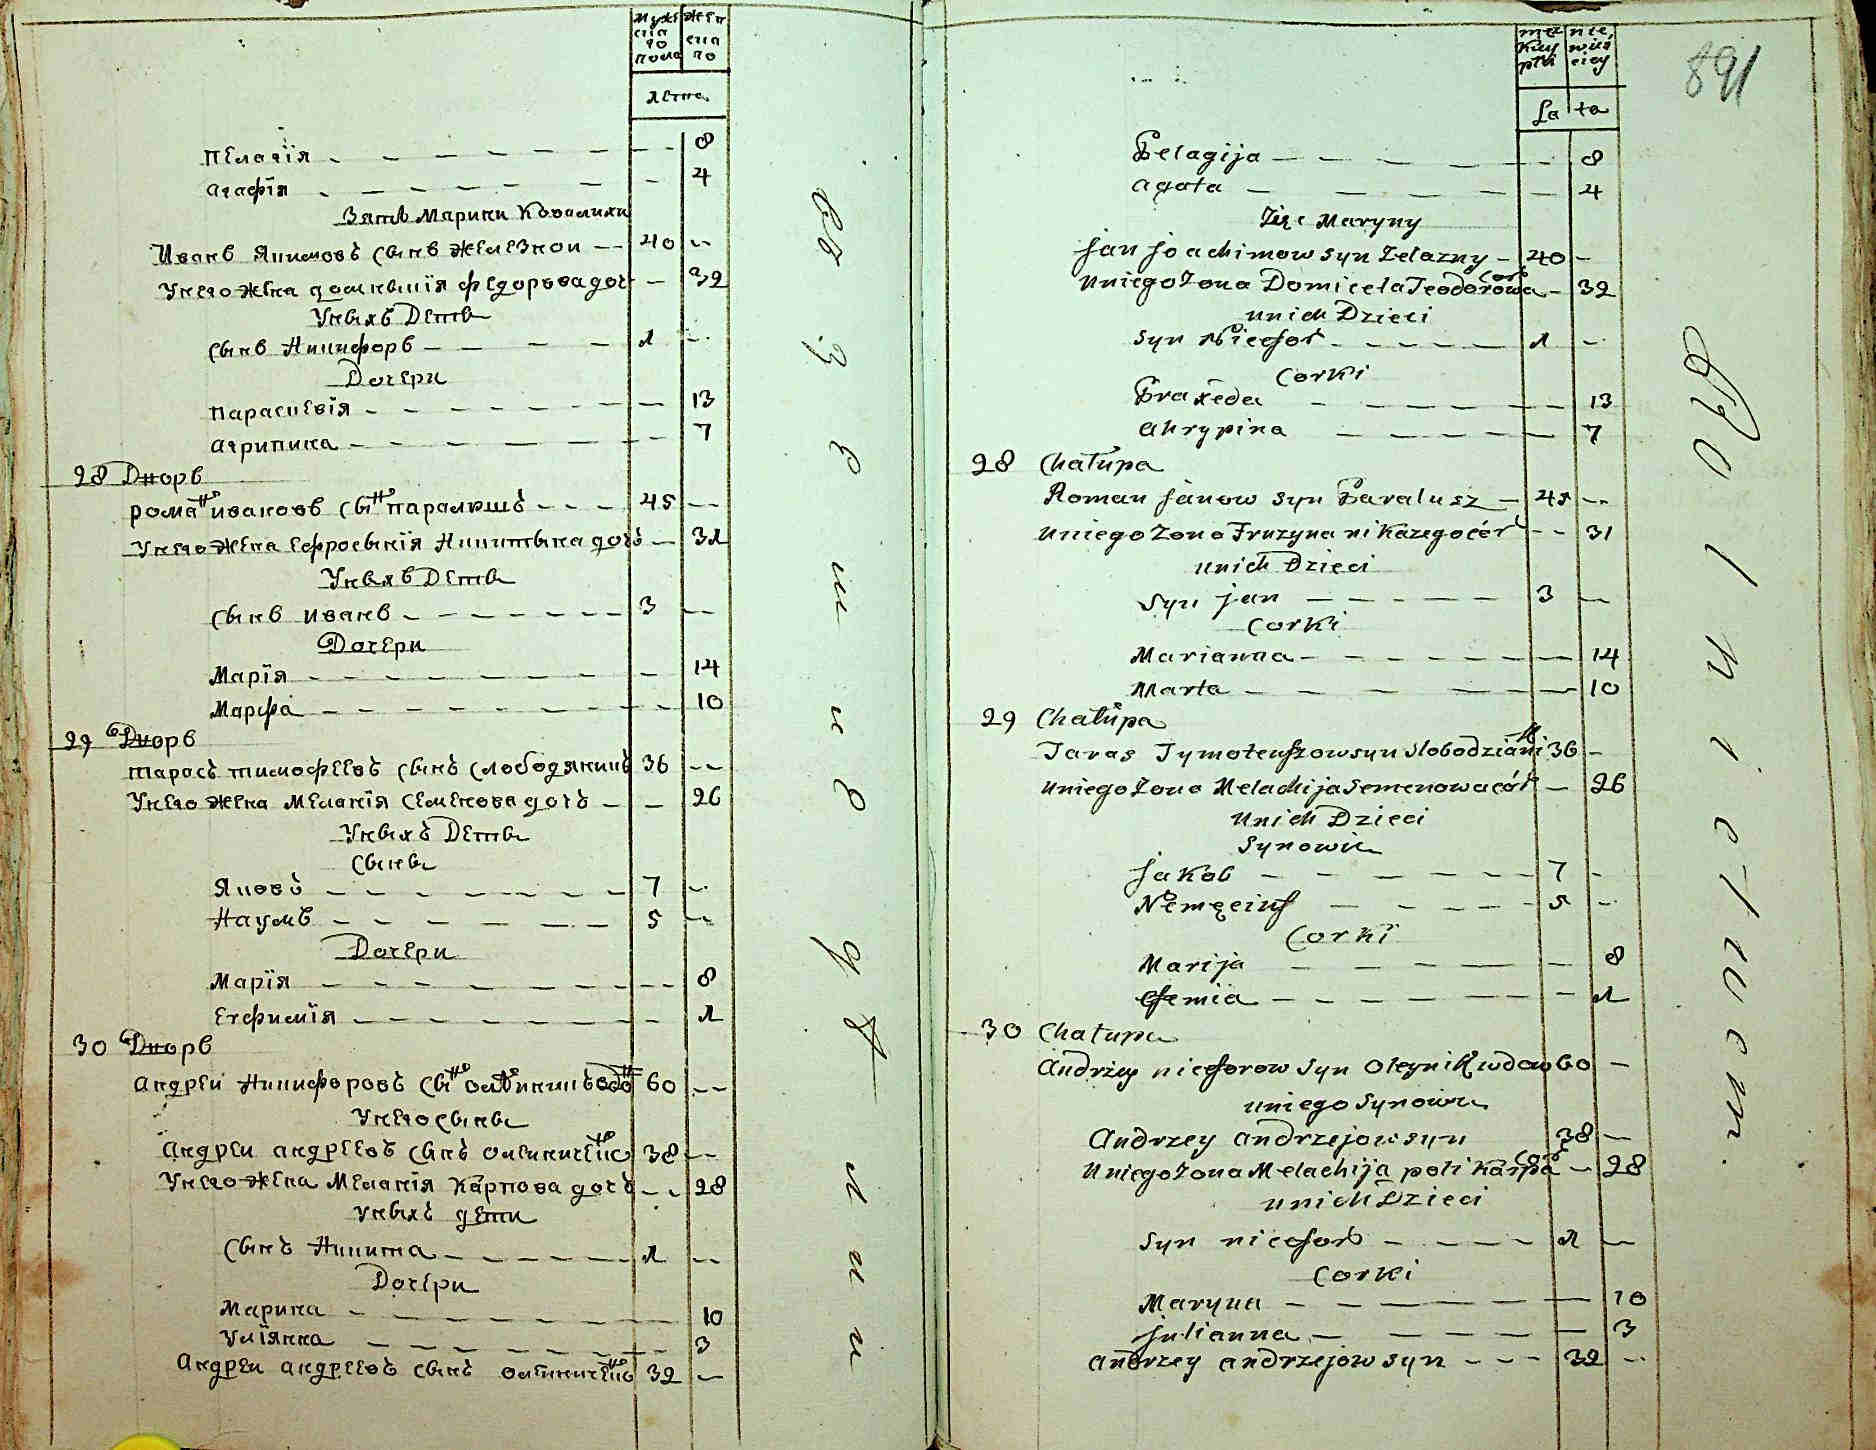 мужеска го пола
женска го
лета
Пелагїя - - - - - - - 8
Агафїя - - - - - - 4
Зятъ Марини Ковалихи
Иванъ Якимовъ сынъ Железнои - 40 -
У него жена Домникїя Федорова доч - 32
У ныхъ Дети
Сынъ Никифоръ - - - - 1 -
Дочери
Параскевїя - - - - - - - 13
Агрипина - - - - - - 7
28 Дворъ
Романъ Ивановъ сынъ Паралюшъ - - - 45 -
У него жена Ефросынїя Никитына дочъ - 31
У ныхъ Дети
Сынъ Иванъ - - - - - - 3 -
Дочери
Марїя - - - - - - - 14
Марфа - - - - - - - 10
29 Дворъ
Тарасъ Тимофеевъ сынъ Слободянинъ 36 -
У него жена Меланїя Семенова дочъ - - 26
У ныхъ Дети
Сыны
Яковъ - - - - - - - 7 -
Наумъ - - - - - - 5 -
Дочери
Марїя - - - - - - - 8
Евфимїя - - - - - - - 1
30 Дворъ
Андреи Никифоровъ сынъ Олѣиникъ вдов 60 -
У него сыны
Андреи Андреевъ сынъ 38 -
У него жена Меланїя Карпова дочъ - - 28
У ныхъ дети
Сынъ Никита - - - - - 1 -
Дочери
Марина - - - - - - - 10
Улїянна - - - - - - - 3
Андреи Андреевъ сынъ 32 -
891
męs kiey płci
nie wieś ciey
Lata
Pelagija - - - - - 8
Agata - - - - 4
Zięc Maryny
Jan Joachimow syn Zelazny - 40 -
U niego Zona Domicela Teodorowa cor - 32
u nich Dzieci
Syn Nicefor - - - - - 1 -
Corki
Praxeda - - - - - 13
Ahrypina - - - - 7
28 Chałupa
Roman Janow syn Paralusz - 45 -
U niego Zona Fruzyna nikazego cór - - 31
u nich Dzieci
Syn Jan - - - - - 3 -
Corki
Marianna - - - - - - 14
Marta - - - - - 10
29 Chałupa
Taras Tymoteuszow syn Slobodzianik 36 -
U niego Zona Melachija Semenowa cór - 26
U nich Dzieci
Synowie
Jakob - - - - - - 7 -
- - - - 5 -
Corki
Marija - - - - - 8
Efemia - - - - - - 1
30 Chałupa
Andrzey Niceforow syn Oleynik wdow 60 -
u niego Synowie
Andrzey Andrzejow syn 38 -
U niego Zona Melachija polikarpa cór - 28
u nich Dzieci
Syn Nicefor - - - - 1 -
Corki
Maryna - - - - - - 10
Julianna - - - - - 3
Andrzey Andrzejow syn - - - 32 -